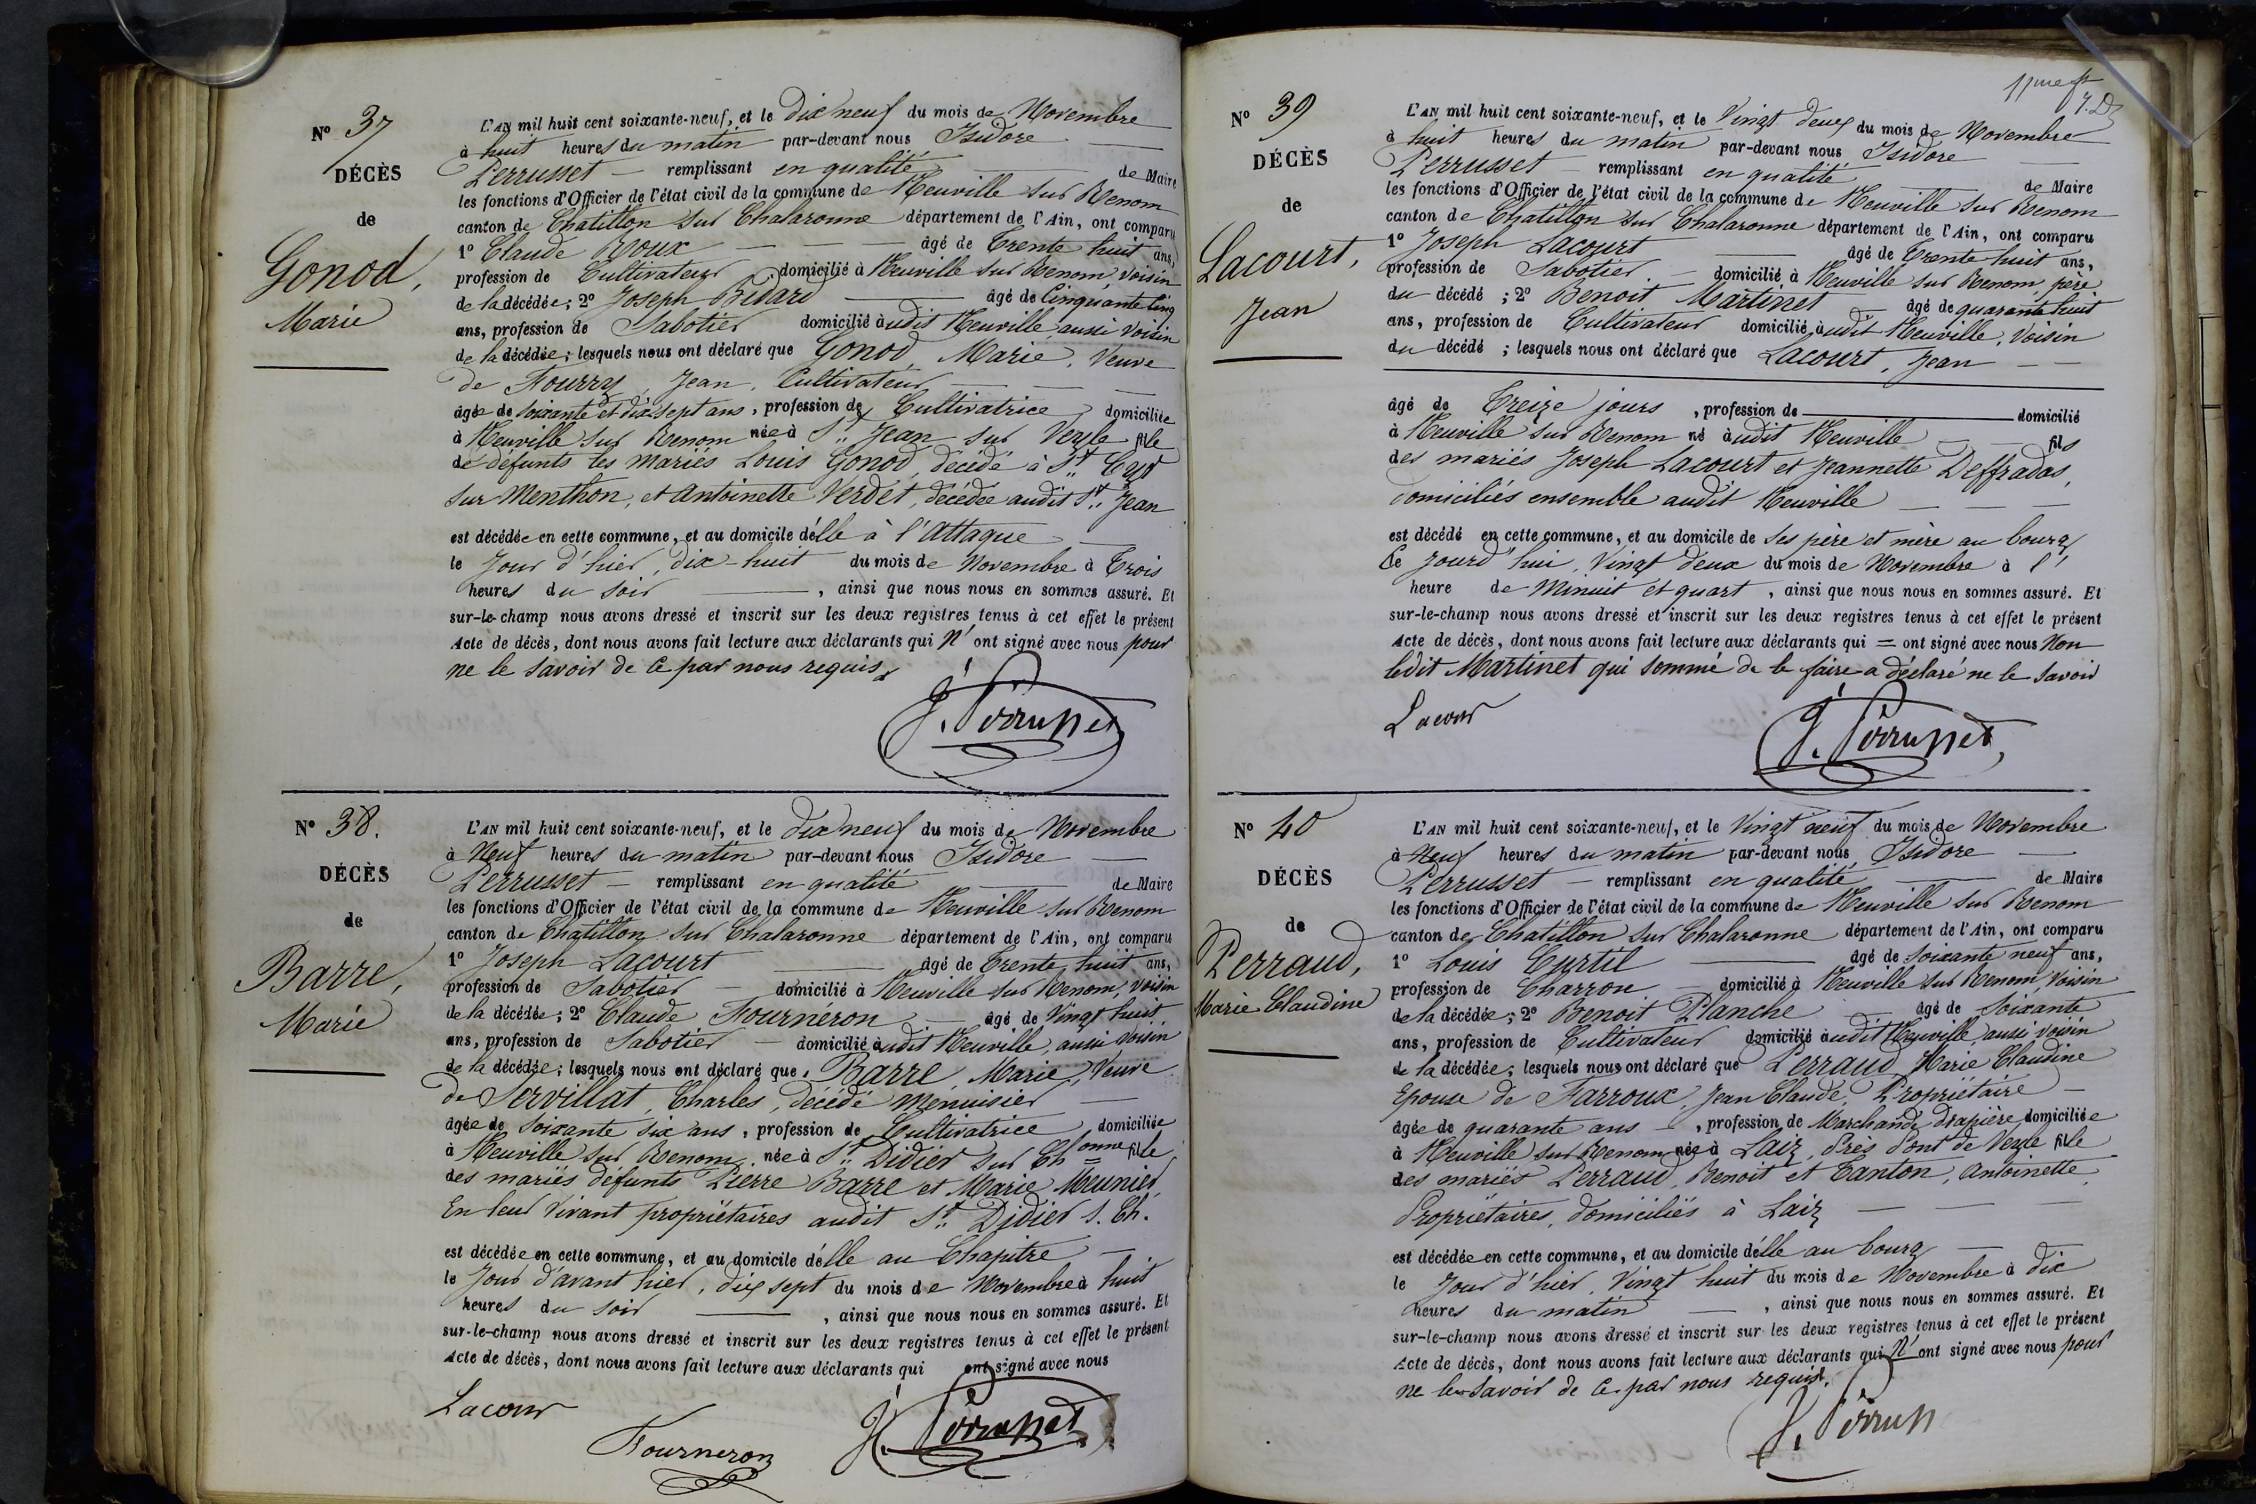 Nº 37
DÉCÈS
de
Gonod,
Marie
L'AN mil huit cent soixante-neuf, et le Dix neuf du mois de Novembre
à huit heures du matin par-devant nous Isidore
Perrusset remplissant en qualité de Maire
les fonctions d'Officier de l'état civil de la commune de Neuville sur Renom
canton de Chatillon sur Chalaronne département de l'Ain, ont comparu
1º Claude Roux âgé de Trente huit ans,
profession de Cultivateur domicilié à Neuville sur Renom, voisin
de la décédée; 2º Joseph Bidard âgé de Cinquante Cinq
ans, profession de Sabotier domicilié audit Neuville, aussi voisin
de la décédée; lesquels nous ont déclaré que Gonod, Marie, Veuve
de Fourry, Jean, Cultivateur
âgée de soixante et dix sept ans, profession de Cultivatrice domiciliée
à Neuville sur Renom née à St. Jean sur Veyle fille
de défunts les mariés Louis Gonod, décédé à St. Cyr
sur Menthon, et Antoinette Verdet, décédée audit St. Jean
est décédée en cette commune, et au domicile d'elle à l'Attaque
le Jour d'hier, dix-huit du mois de Novembre à Trois
heures du soir, ainsi que nous nous en sommes assuré. Et
sur-le-champ nous avons dressé et inscrit sur les deux registres tenus à cet effet le présent
Acte de décès, dont nous avons fait lecture aux déclarants qui n'ont signé avec nous pour
ne le savoir de ce par nous requis.
J. Perrusset
Nº 38.
DÉCÈS
de
Barre,
Marie
L'AN mil huit cent soixante-neuf, et le dix neuf du mois de Novembre
à Neuf heures du matin par-devant nous Isidore
Perrusset remplissant en qualité de Maire
les fonctions d'Officier de l'état civil de la commune de Neuville sur Renom
canton de Chatillon sur Chalaronne département de l'Ain, ont comparu
1º Joseph Lacourt âgé de Trente huit ans,
profession de Sabotier domicilié à Neuville sur Renom, voisin
de la décédée; 2º Claude Fourneron âgé de Vingt huit
ans, profession de Sabotier domicilié audit Neuville, aussi voisin
de la décédée; lesquels nous ont déclaré que Barre, Marie, Veuve
de Servillat, Charles, décédé menuisier
âgée de soixante six ans, profession de Cultivatrice domiciliée
à Neuville sur Renom, née à St. Didier sur Chonne fille
des mariés défunts Pierre Barre et Marie Meunier,
En leur vivant propriétaires audit St. Didier s. Ch.
est décédée en cette commune, et au domicile d'elle au Chapitre
le Jour d'avant hier, dix sept du mois de Novembre à huit
heures du soir, ainsi que nous nous en sommes assuré. Et
sur-le-champ nous avons dressé et inscrit sur les deux registres tenus à cet effet le présent
Acte de décès, dont nous avons fait lecture aux déclarants qui ont signé avec nous
Lacour
Fourneron
J. Perrusset
Nº 39
DÉCÈS
de
Lacourt,
Jean
L'AN mil huit cent soixante-neuf, et le Vingt deux du mois de Novembre
à huit heures du matin par-devant nous Isidore
Perrusset remplissant en qualité de Maire
les fonctions d'Officier de l'état civil de la commune de Neuville sur Renom
canton de Chatillon sur Chalaronne département de l'Ain, ont comparu
1º Joseph Lacourt âgé de Trente huit ans,
profession de Sabotier domicilié à Neuville sur Renom, père
du décédé; 2º Benoit Martinet âgé de quarante huit
ans, profession de Cultivateur domicilié audit Neuville, Voisin
du décédé; lesquels nous ont déclaré que Lacourt, Jean
âgé de Treize jours, profession de domicilié
à Neuville sur Renom né audit Neuville fils
des mariés Joseph Lacourt et Jeannette Deffradas,
domiciliés ensemble audit Neuville
est décédé en cette commune, et au domicile de ses père et mère au bourg
Ce Jourd'hui, Vingt deux du mois de Novembre à l'
heure de Minuit et quart, ainsi que nous nous en sommes assuré. Et
sur-le-champ nous avons dressé et inscrit sur les deux registres tenus à cet effet le présent
Acte de décès, dont nous avons fait lecture aux déclarants qui = ont signé avec nous Non
ledit Martinet qui sommé de le faire a déclaré ne le savoir
Lacour
J. Perrusset
Nº 40
DÉCÈS
de
Perraud,
Marie Claudine
L'AN mil huit cent soixante-neuf, et le Vingt neuf du mois de Novembre
à Neuf heures du matin par-devant nous Isidore
Perrusset remplissant en qualité de Maire
les fonctions d'Officier de l'état civil de la commune de Neuville sur Renom
canton de Chatillon sur Chalaronne département de l'Ain, ont comparu
1º Louis Curtil âgé de soixante neuf ans,
profession de Charron domicilié à Neuville sur Renom, Voisin
de la décédée; 2º Benoit Planche âgé de Soixante
ans, profession de Cultivateur domicilié audit Neuville, aussi voisin
de la décédée; lesquels nous ont déclaré que Perraud, Marie Claudine
Epouse de Farroux, Jean Claude, Propriétaire
âgée de quarante ans, profession de Marchande drapière domiciliée
à Neuville sur Renom née à Laiz, Près Pont de Veyle fille
des mariés Perraud, Benoit et Tanton, Antoinette,
Propriétaires, domiciliés à Laiz
est décédée en cette commune, et au domicile d'elle au bourg
le Jour d'hier, Vingt huit du mois de Novembre à dix
heures du matin, ainsi que nous nous en sommes assuré. Et
sur-le-champ nous avons dressé et inscrit sur les deux registres tenus à cet effet le présent
Acte de décès, dont nous avons fait lecture aux déclarants qui n'ont signé avec nous pour
ne le savoir de ce par nous requis.
J. Perruss